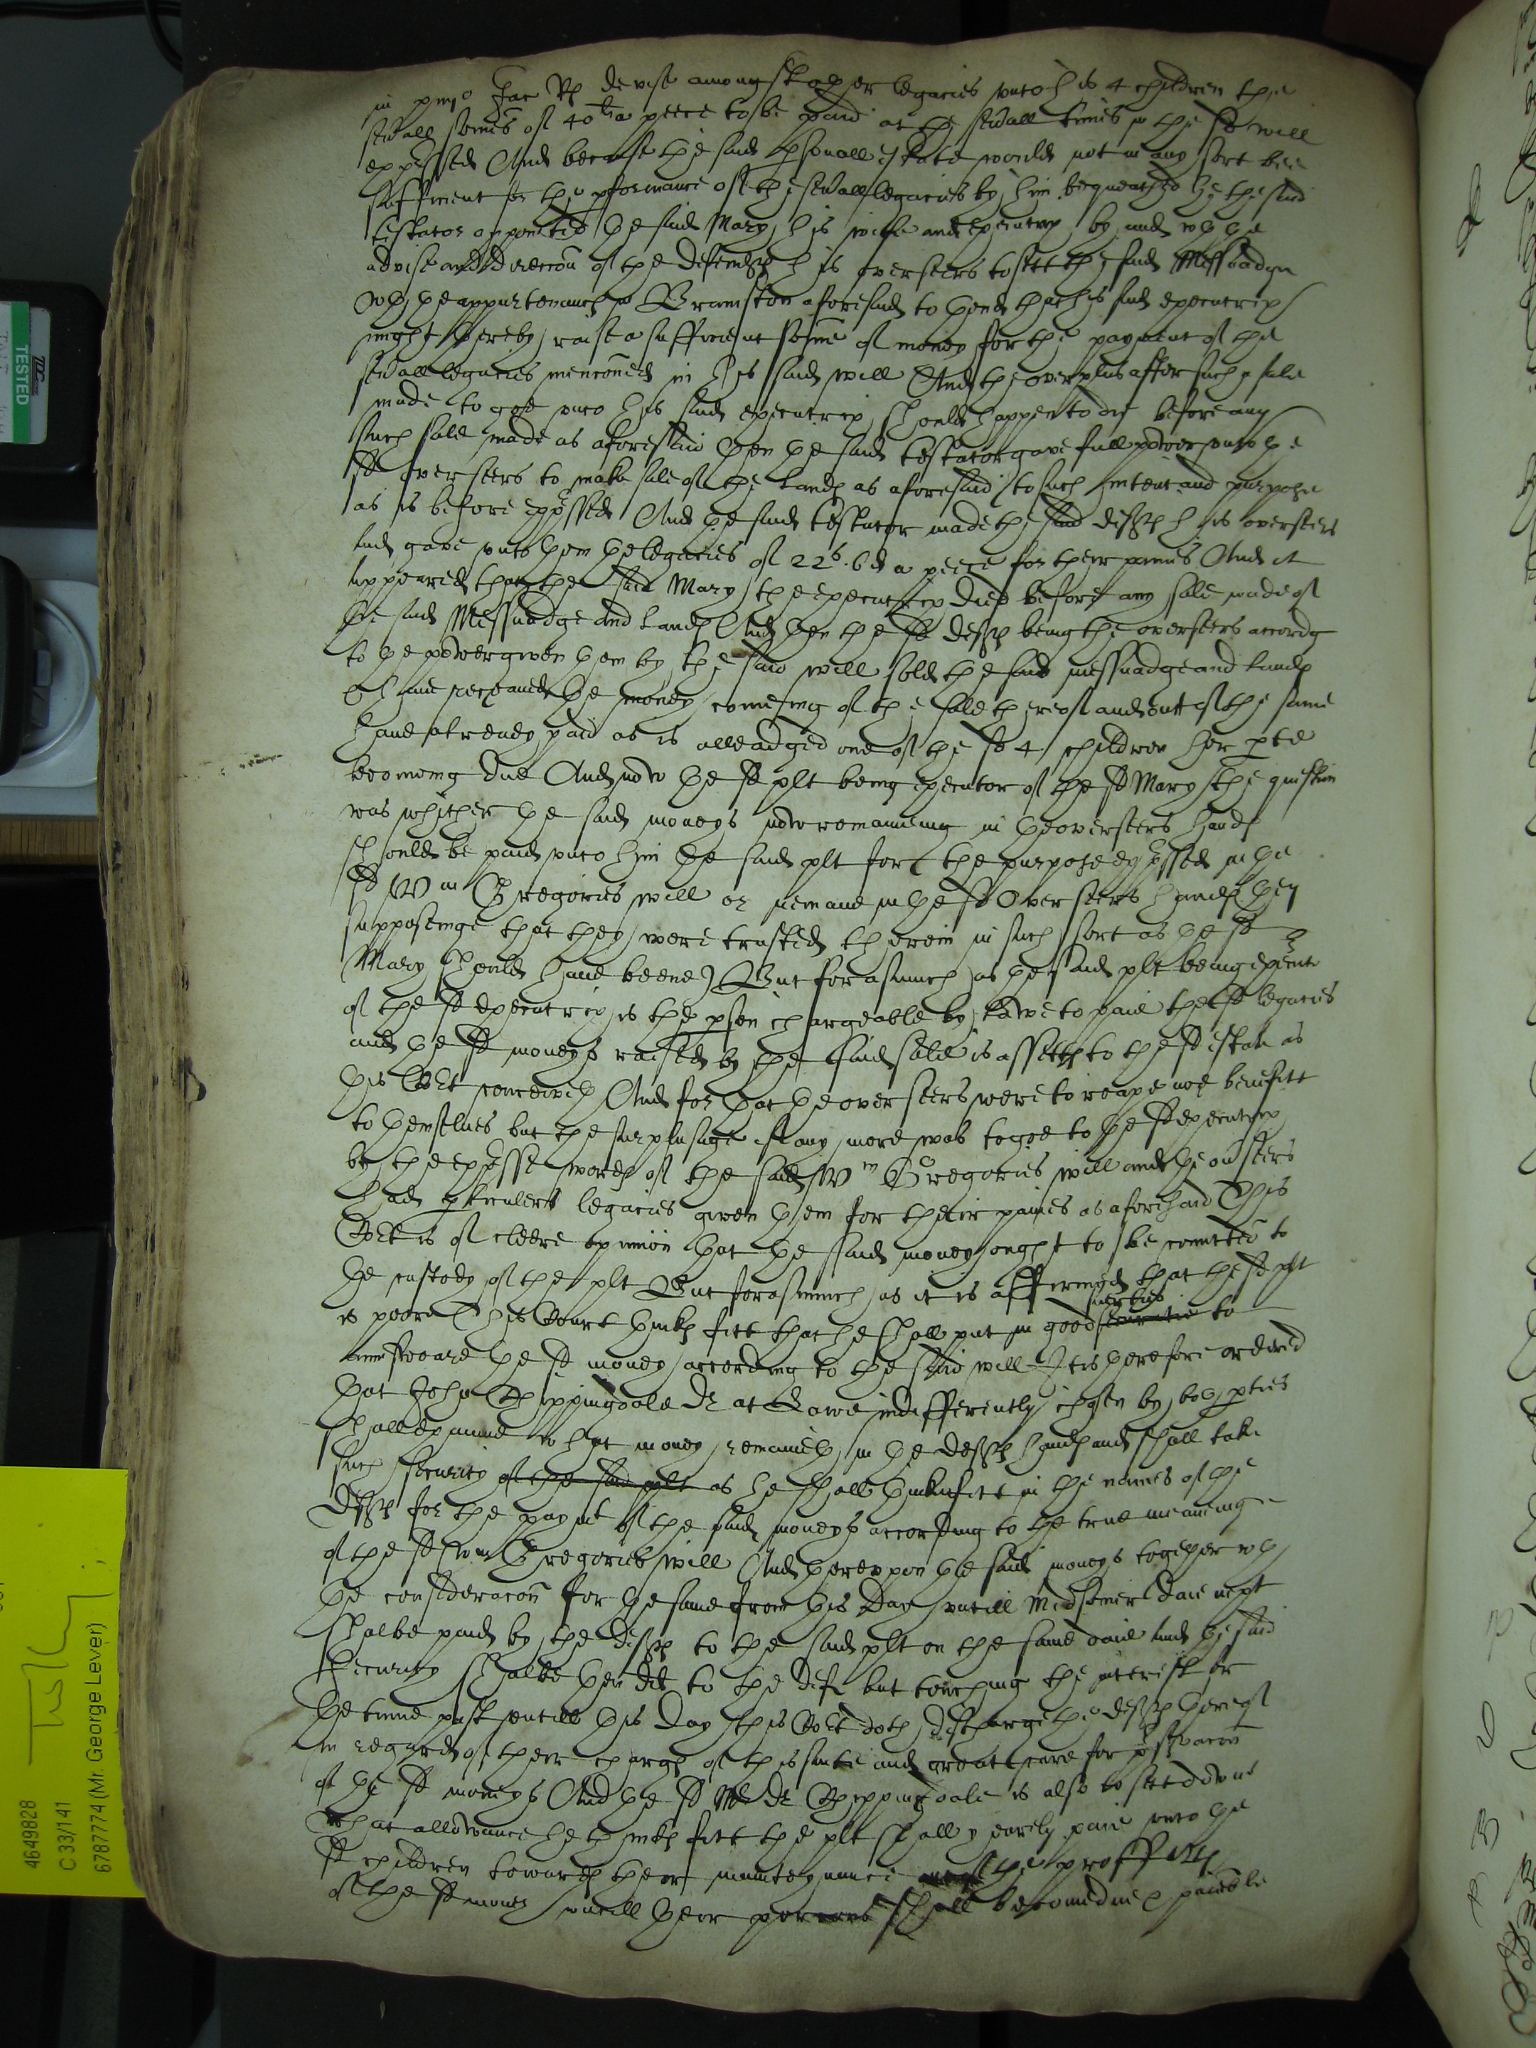 in primo Jac Rs devise amongst other legacies unto his 4 children the
severall somes of 40li a peece to be paid at the severall times in the sd will
expressed And because the said psonall estate would not in any sort bee
sufficient for the pformance of the severall legacies by him bequeathed he the said
testator appointed the said Mary his wife and executrix by and wth the
advise and direccon of the defendts his overseers to sell the said Messuadge
wth the appurtenances in Bramston aforesaid to thend that his said executrix
might thereby raise a sufficient some of money for the payment of the
severall legacies menconed in his said will And the overplus after such sale
made to goe unto his said executrix should happen to die before any
such sale made as aforesaid then the said testator gave full power unto the
sd overseers to make sale of the lands as aforesaid to such intent and purpose
as is before expressed And the said testator made the said defts his overseers
and gave unto them the legacies of 22s. 6d a peece for their paines And it
appeared that the said Mary the executrix died before any sale made of
the said Messuadge and lands And then the sd defts being the overseers accordg
to the power given them by the said will sold the said messuadge and lands
& have receaved the money comeing of the sale thereof and out of the same
have already paid as is alleadged one of the sd 4 children her pte
becomeing due And now the sd plt being executor of the sd Mary the question
was whither the said moneys now remaineing in the overseers hands
should be paid unto him the said plt for the purpose expressed in the
sd Wm Gregories will or remaine in the sd Overseers hands they
supposeinge that they were trusted therein in such sort as the sd
Mary should have beene) But forasmuch as the said plt being executr
of the sd executrix is the pson chargeable by lawe to paie the sd legacies
and the sd moneys raised by the said sale is assetts to the sd estate as
this Cort conceiveth And for that the overseers were to reape noe benefitt
to themselves but the surplusage if any were was to goe to the sd executrix
by the expresse words of the said Wm Gregories will and the overseers
had pticuler legacies given them for their paines as aforesaid This
Cort is of cleere opinion that the said money ought to be comitted to
the custody of the plt But forasmuch as it is affirmed that the sd plt
is poore this Court thinks fitt that he shall put in good securitie suerties to
aunsweare the sd money according to the said will It is therefore ordered
that John Tippingdale Dr at Lawe indifferently chosen by both pties
shall examine what money remaineth in the defts hands and shall take
such security of the said plt as he shall thinke fitt in the names of the
defts for the paymt of the said moneys according to the true meaneing
of the sd Wm Gregories will And thereupon the said moneys together wth
the consideracon for the same from this day untill Midsomer daie next
shalbe paid by the defts to the said plt on the same daie and the said
security shalbe then dd to the defts but touching the interest for
the time past untill this day this Cort doth discharge the defts thereof
in regard of their charge of this suite and great care for pservacon
of the sd moneys And the sd Mr Dr Tippingdale is also to sett downe
what allowance he thinks fitt the plt shall yearely paie unto the
sd children towards their maintenance of the proffitts
of the sd money untill their porcons shall become due & paieable
TESTED
4649828
C 33/141
6787774 (Mr. George Lever)